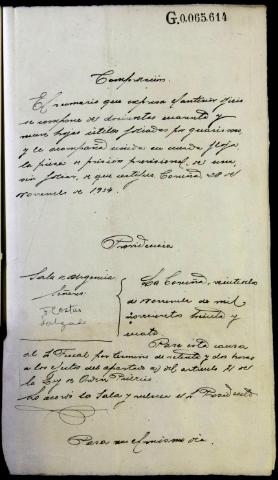 G.0.065.614
Comparación.
El sumario que expresa el anterior oficio
se compone de doscientas cuarenta y
hojas utiles foliadas por guarismos
y le acompaña unida en cuerda floja
la pieza de prision provisional, de
sin foliar, de que certifico. Coruña 28 de
Noviembre de 1934.
Providencia
Sala de Urgencia
Señores
Costas
Salgado
La Coruña, veintiocho
de Noviembre de mil
novecientos treinta y
cuatro.
Pase esta causa
al Sr Fiscal por termino de setenta y dos horas
a los efectos del apartado a) del articulo 71 de
la Ley de Orden Público
Lo acordó la Sala y rubrica el Sr Presidente
Pasa en el mismo dia.